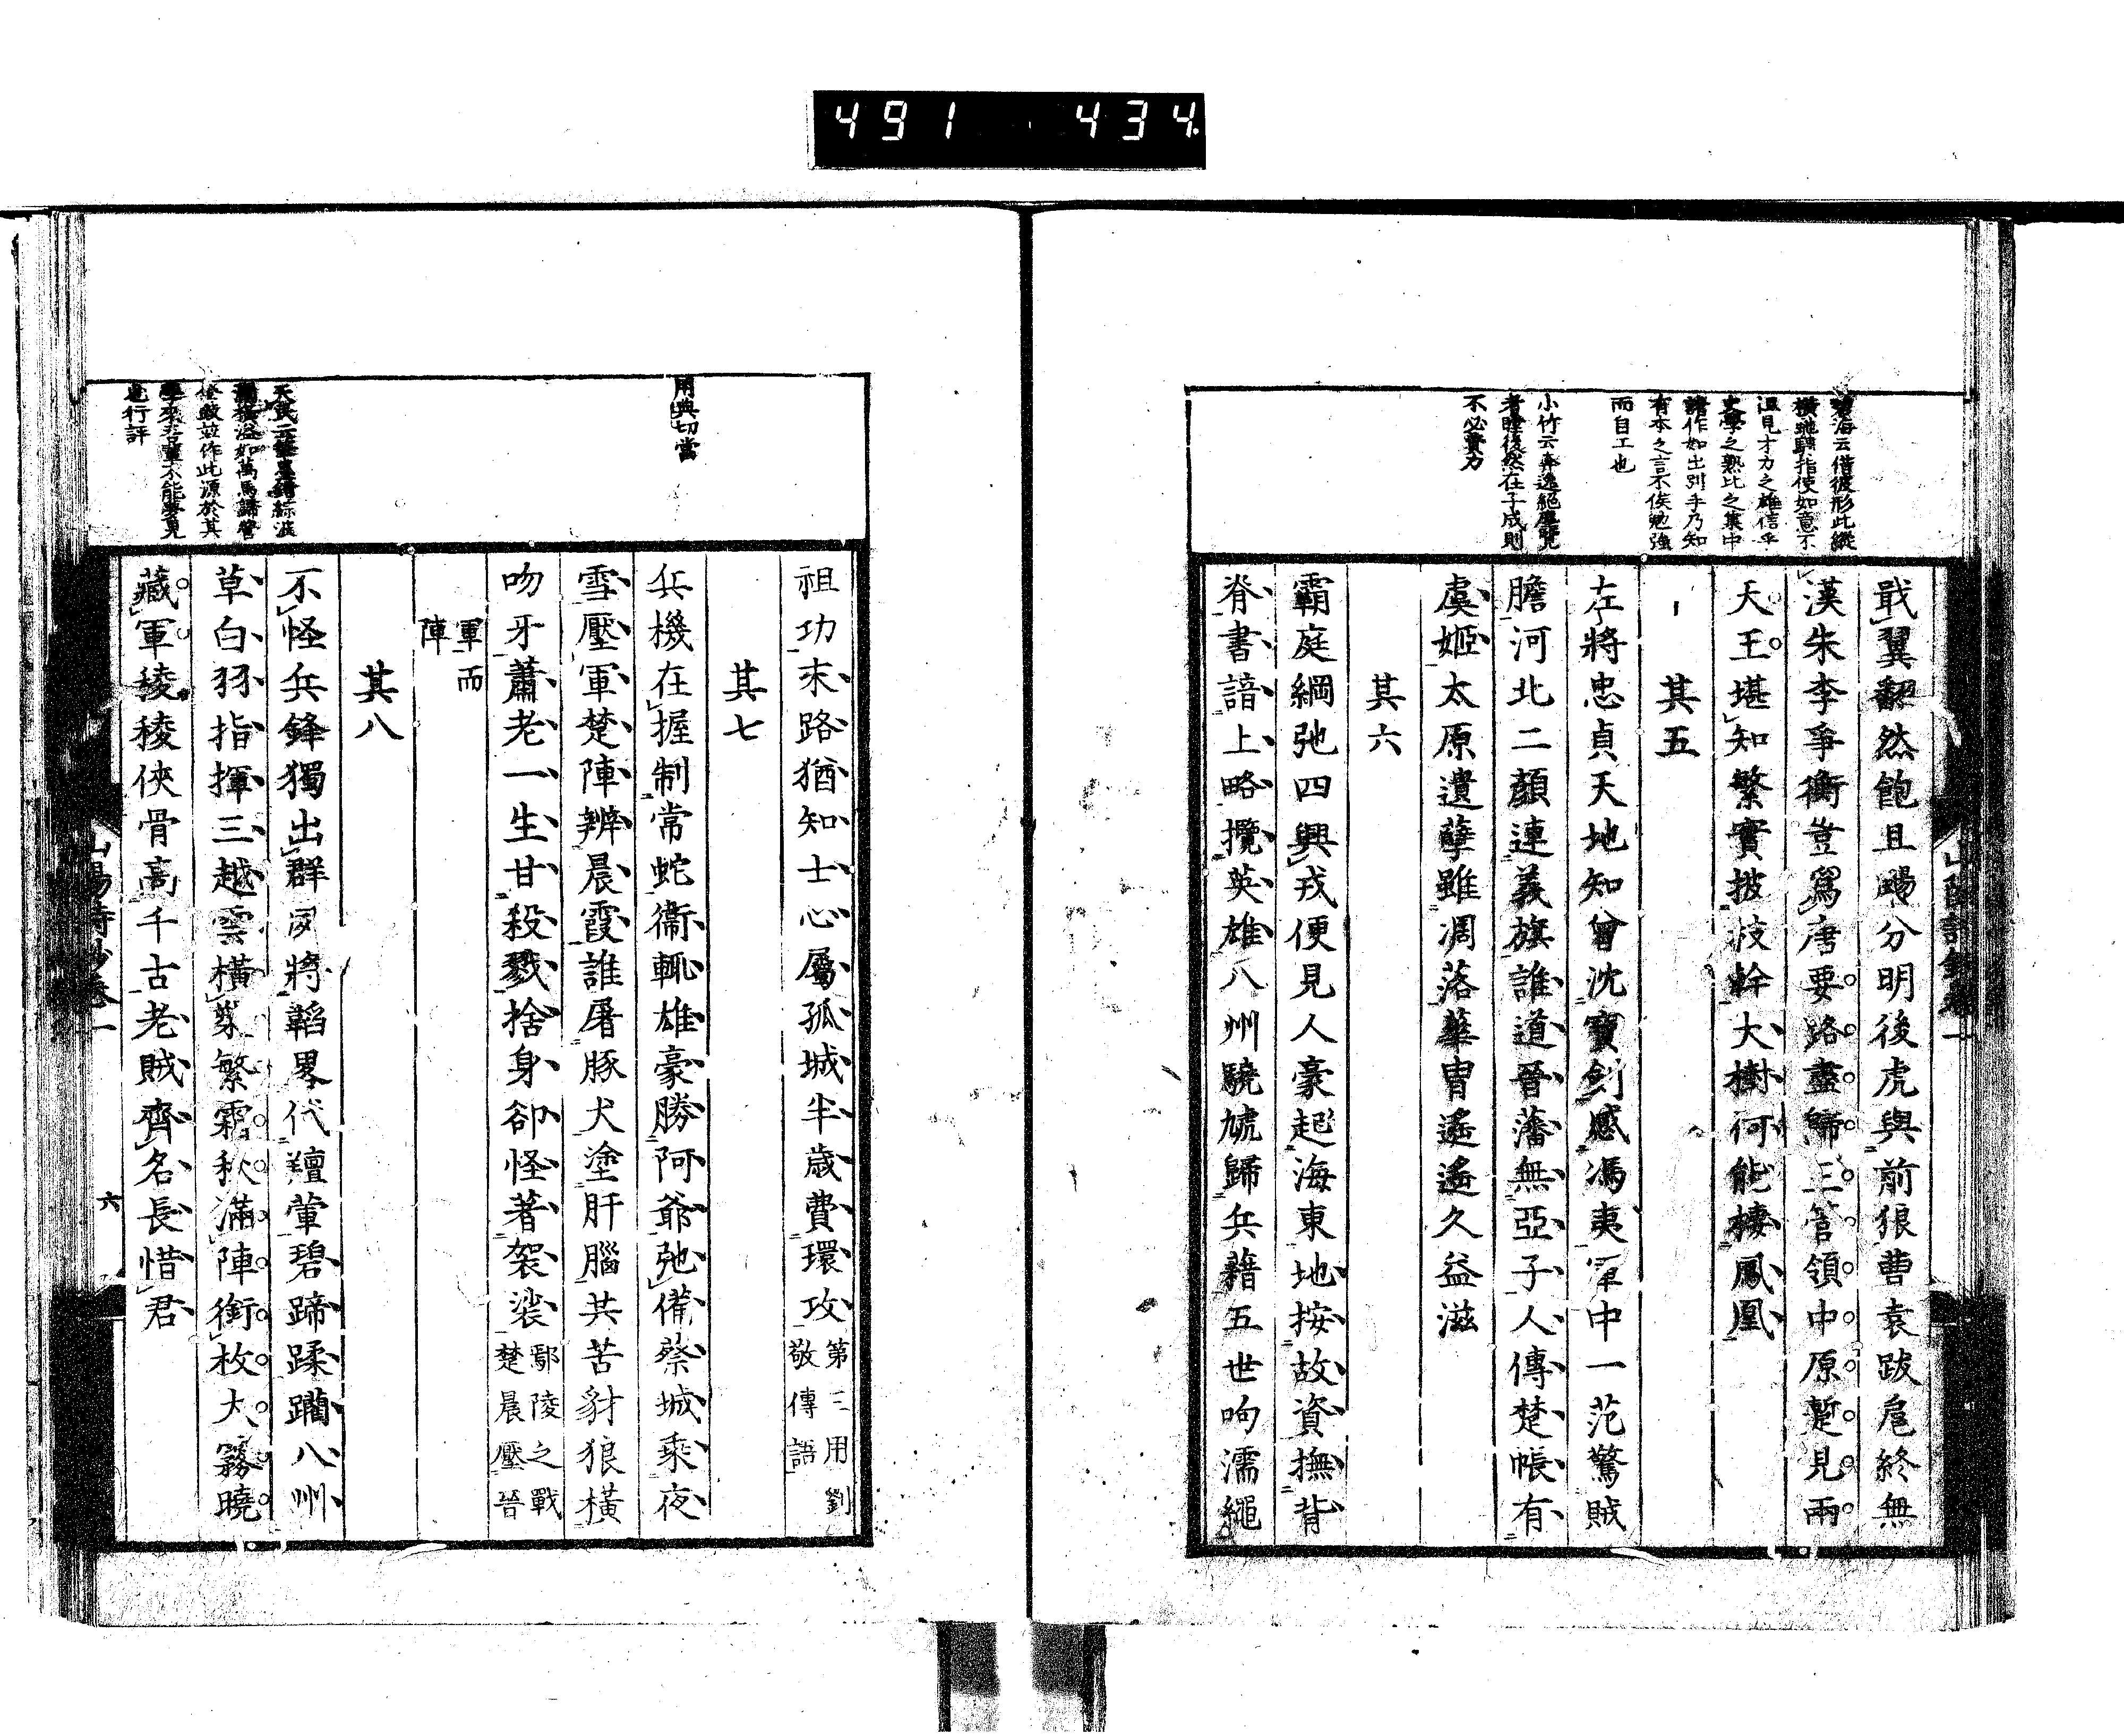 491 434
碧海云借彼形此縱
橫馳騁指使如意不
温見才力之雄信乎
史學之熟比之集中
諸作如出別手乃知
有本之言不俟勉強
而自工也
小竹云奔逸絕塵
者瞠後然在子成則
不必費力
戢翼翻然飽且颺分明後虎與前狼曹袁跋扈終無
漢朱李爭衡豈爲唐要路盡歸三管領中原蹔見兩
天王堪知繁實披枝幹大樹何能棲鳳凰
其五
左將忠貞天地知曾沈寶劍感馮夷軍中一范驚賊
膽河北二顏連義旗誰道晉藩無亞子人傳楚帳有
虞姬太原遺孽雖凋落華冑遙遙久益滋
其六
霸庭綱弛四興戎便見人豪起海東地按故資撫背
脊書諳上略攬英雄八州驍虓歸兵籍五世呴濡繩
祖功末路猶知士心屬孤城半歲費環攻
第三用劉
敬傳語
用典切當
其七
兵機在握制常蛇衞輒雄豪勝阿爺弛備蔡城乘夜
雪壓軍楚陣辨晨霞誰屠豚犬塗肝腦共苦豺狼橫
吻牙蕭老一生甘殺戮捨身卻怪著袈裟
鄢陵之戰
楚晨壓晉
軍而
陣
其八
天民云
溢如萬馬歸營
並作此源於其
學來吾輩不能夢見
也行評
不怪兵鋒獨出群夙將韜畧代羶葷碧蹄蹂躪八州
草白羽指揮三越雲橫槊繁霜秋滿陣銜枚大霧曉
藏軍稜稜俠骨高千古老賊齊名長惜君
山陽詩鈔卷一
六